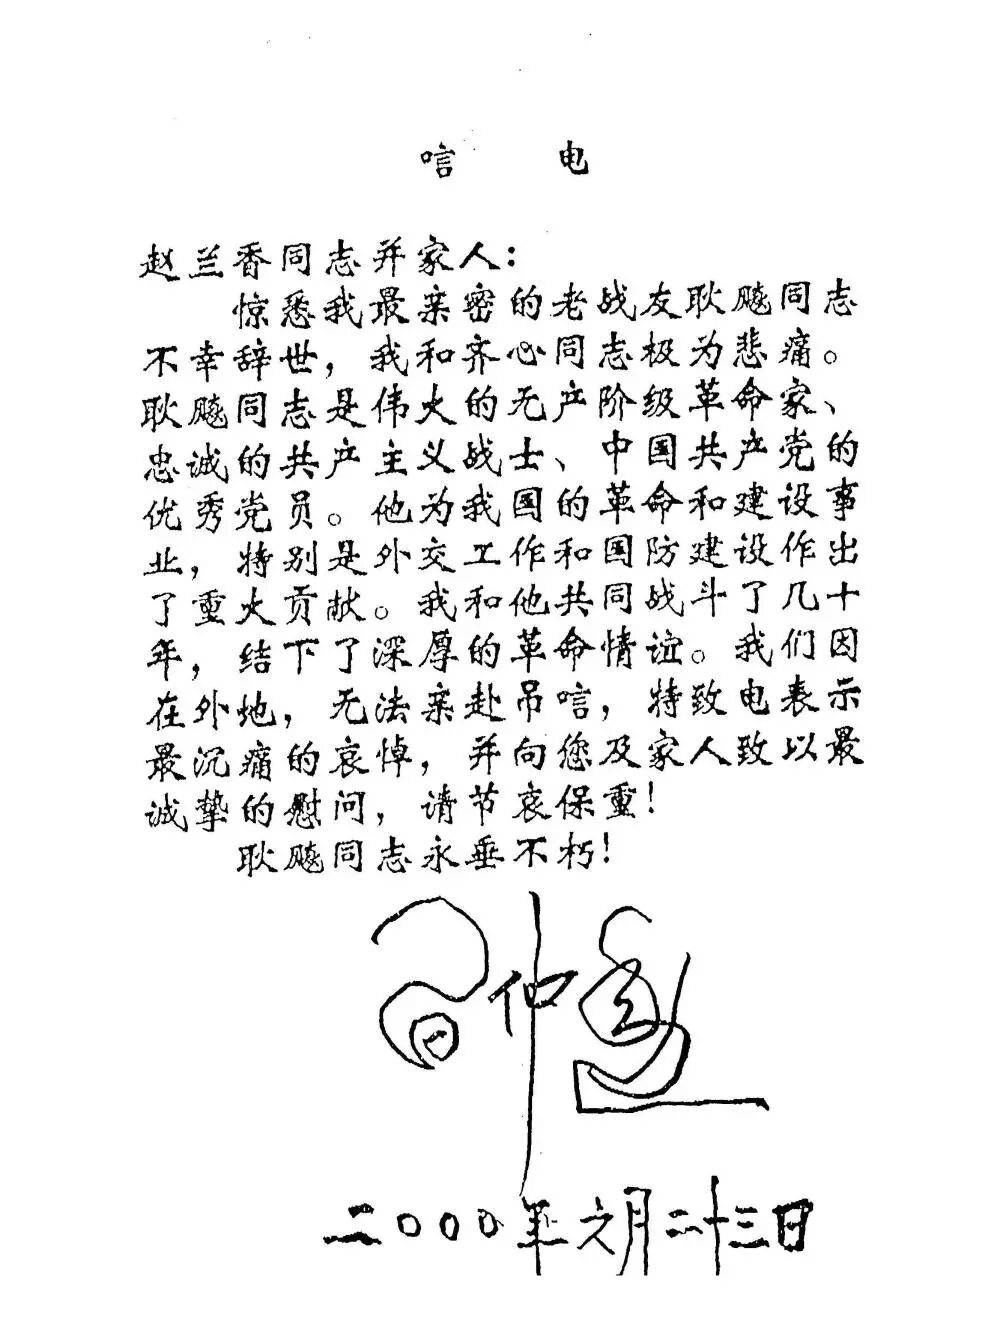 唁 电
赵兰香同志并家人：
惊悉我最亲密的老战友耿飚同志
不幸辞世，我和齐心同志极为悲痛。
耿飚同志是伟大的无产阶级革命家、
忠诚的共产主义战士、中国共产党的
优秀党员。他为我国的革命和建设事
业，特别是外交工作和国防建设作出
了重大贡献。我和他共同战斗了几十
年，结下了深厚的革命情谊。我们因
在外地，无法亲赴吊唁，特致电表示
最沉痛的哀悼，并向您及家人致以最
诚挚的慰问，请节哀保重！
耿飚同志永垂不朽！
习仲勋
二〇〇〇年六月二十三日